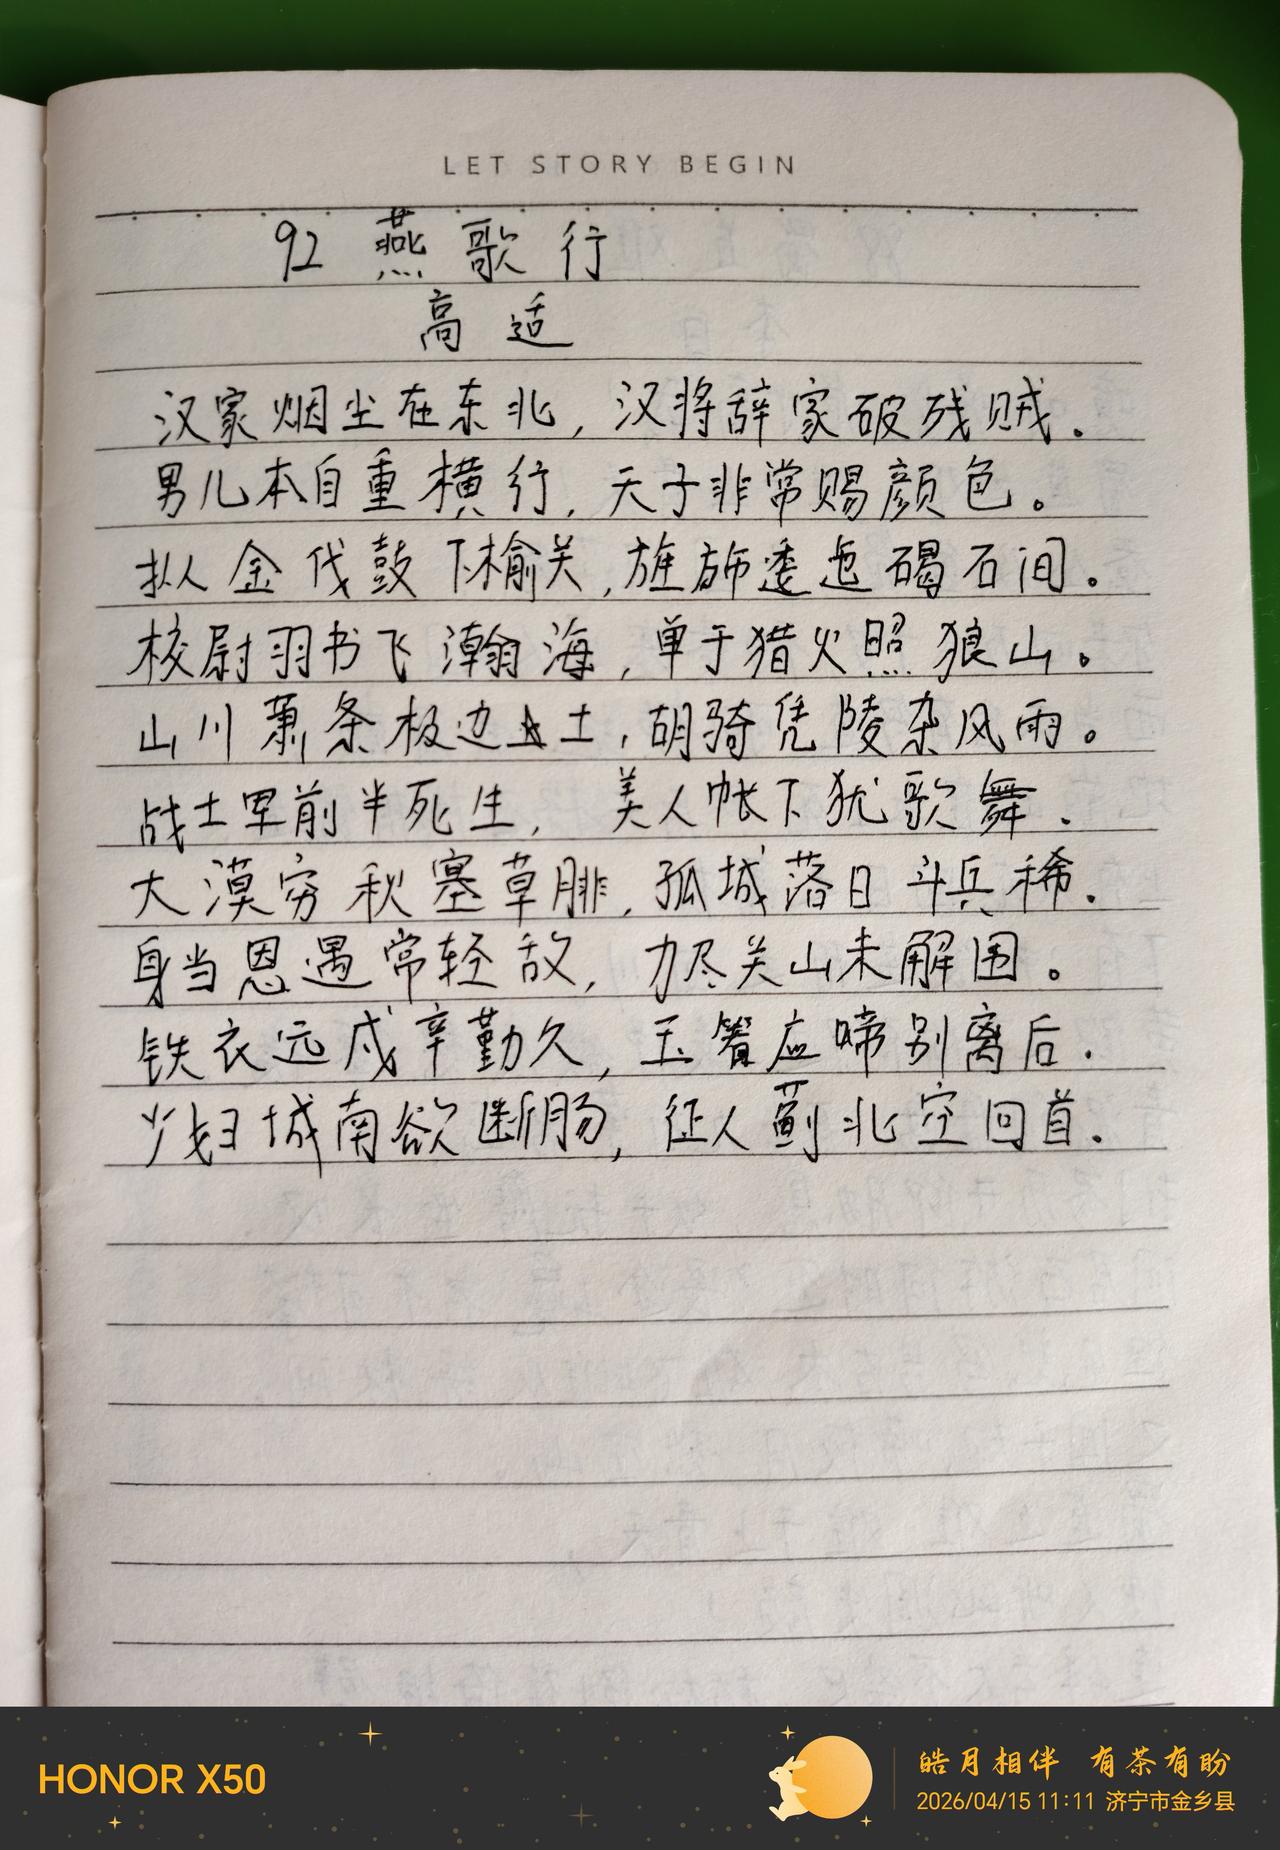 LET STORY BEGIN
92 燕歌行
高适
汉家烟尘在东北,汉将辞家破残贼.
男儿本自重横行,天子非常赐颜色。
扒金伐鼓下榆关,旌斾逶迤碣石间。
校尉羽书飞瀚海,单于猎火照狼山。
山川萧条极边土,胡骑凭陵杂风雨。
战士军前半死生,美人帐下犹歌舞.
大漠穷秋塞草腓,孤城落日斗兵稀.
身当恩遇常轻敌,力尽关山未解围。
铁衣远戍辛勤久,玉箸应啼别离后.
少妇城南欲断肠,征人蓟北空回首.
HONOR X50
皓月相伴 有茶有盼
2026/04/15 11:11 济宁市金乡县